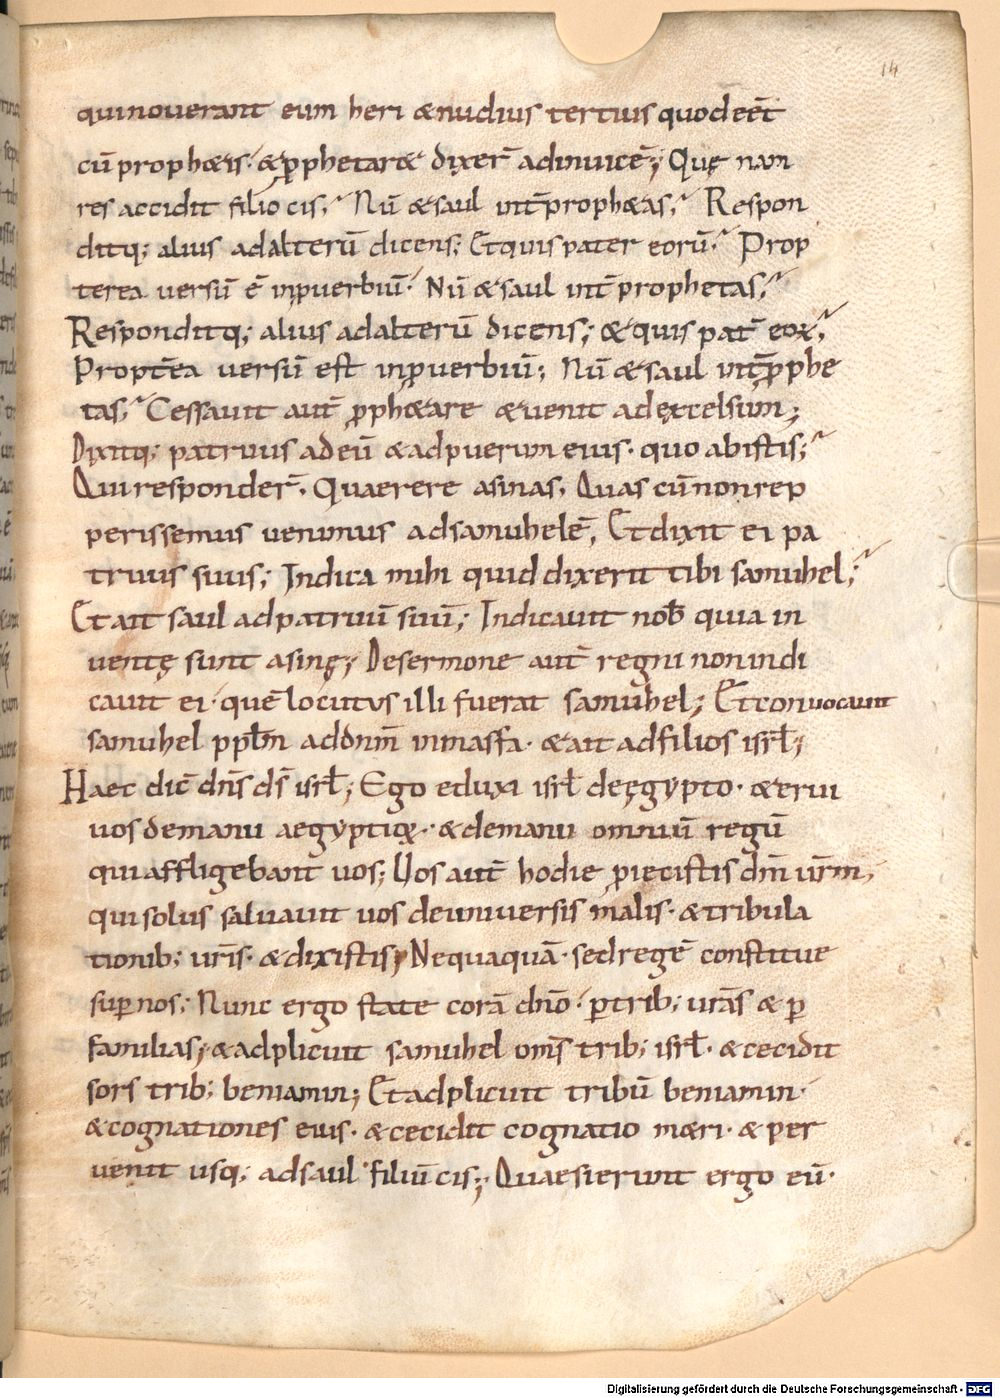 14
quinouerant eum heri &nudius tertius quodeēt
cū proph&is· &ꝓphetar& dixeR̄ adinuicē; Quę nam
res accidit filio cis; Nū &saul int̄ proph&as; Respon
ditq; alius adalterū dicens; Etquis pater eorū· Prop
terea uersū ē inꝓuerbiū· Nū &saul int̄ prophetas;
Responditq; alius adalterū dicens; &quis pat̄ eoꝝ;
Propt̄ea uersū est inꝓuerbiū; Nū &saul int̄ ꝓphe
tas; Cessauit aut̄ ꝓph&are &uenit adęxcelsum;
Dixitq; patruus adeū &adpuerum eius· quo abistis;
Quiresponder̄· Quaerere asinas, Quas cūnonrep
perissemus uenimus adsamuhelē, Etdixit ei pa
truus suus; Indica mihi quiddixerit tibi samuhel;
Etait saul adpatruū suū; Indicauit nob̄ quia in
uentę sunt asinę; Desermone aut̄ regni nonindi
cauit ei· quēlocutus illi fuerat samuhel; Etconuocauit
samuhel ppłm addn̄m inmasfa· &ait adfilios isrł;
Haec dic̄ dn̄s ds̄ isrł; Ego eduxi isrł deęgypto· &erui
uosdemanu aegyptioꝝ· &demanu omniū regū
quiaffligebant uos; Uos aut̄ hodie ꝓiecistis dm̄ ur̄m,
quisolus saluauit uos deuniuersis malis· &tribula
tionib; ur̄is· &dixistis; Nequaquā· sedregē constitue
suꝑ nos; Nunc ergo state corā dn̄o· ꝑtrib; urās & ꝑ
familias; &adplicuit samuhel oms̄ trib; isrł· &cecidit
sors trib; beniamin; Etadplicuit tribū beniamin·
&cognationes eius· &cecidit cognatio m&ri· &per
uenit usq; adsaul filiū cis; Quaesierunt ergo eū·
Digitalisierung gefördert durch die Deutsche Forschungsgemeinschaft - DFG